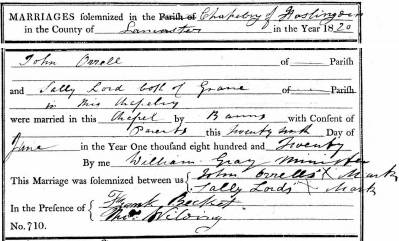 MARRIAGES solemnized in the Parish of Chapelry of Haslingden
in the County of Lancaster in the Year 1820
John Orrell of Parish
and Sally Lord both of Grane of Parish
in this Chapelry
were married in this Chapel by Banns with Consent of
Parents this twenty sixth Day of
June in the Year One thousand eight hundred and Twenty
By me William Gray Minister
This Marriage was solemnized between us { John Orrells X Mark
Sally Lords X Mark
In the Presence of { Frank Becket
Thos. Wilding
No. 710.